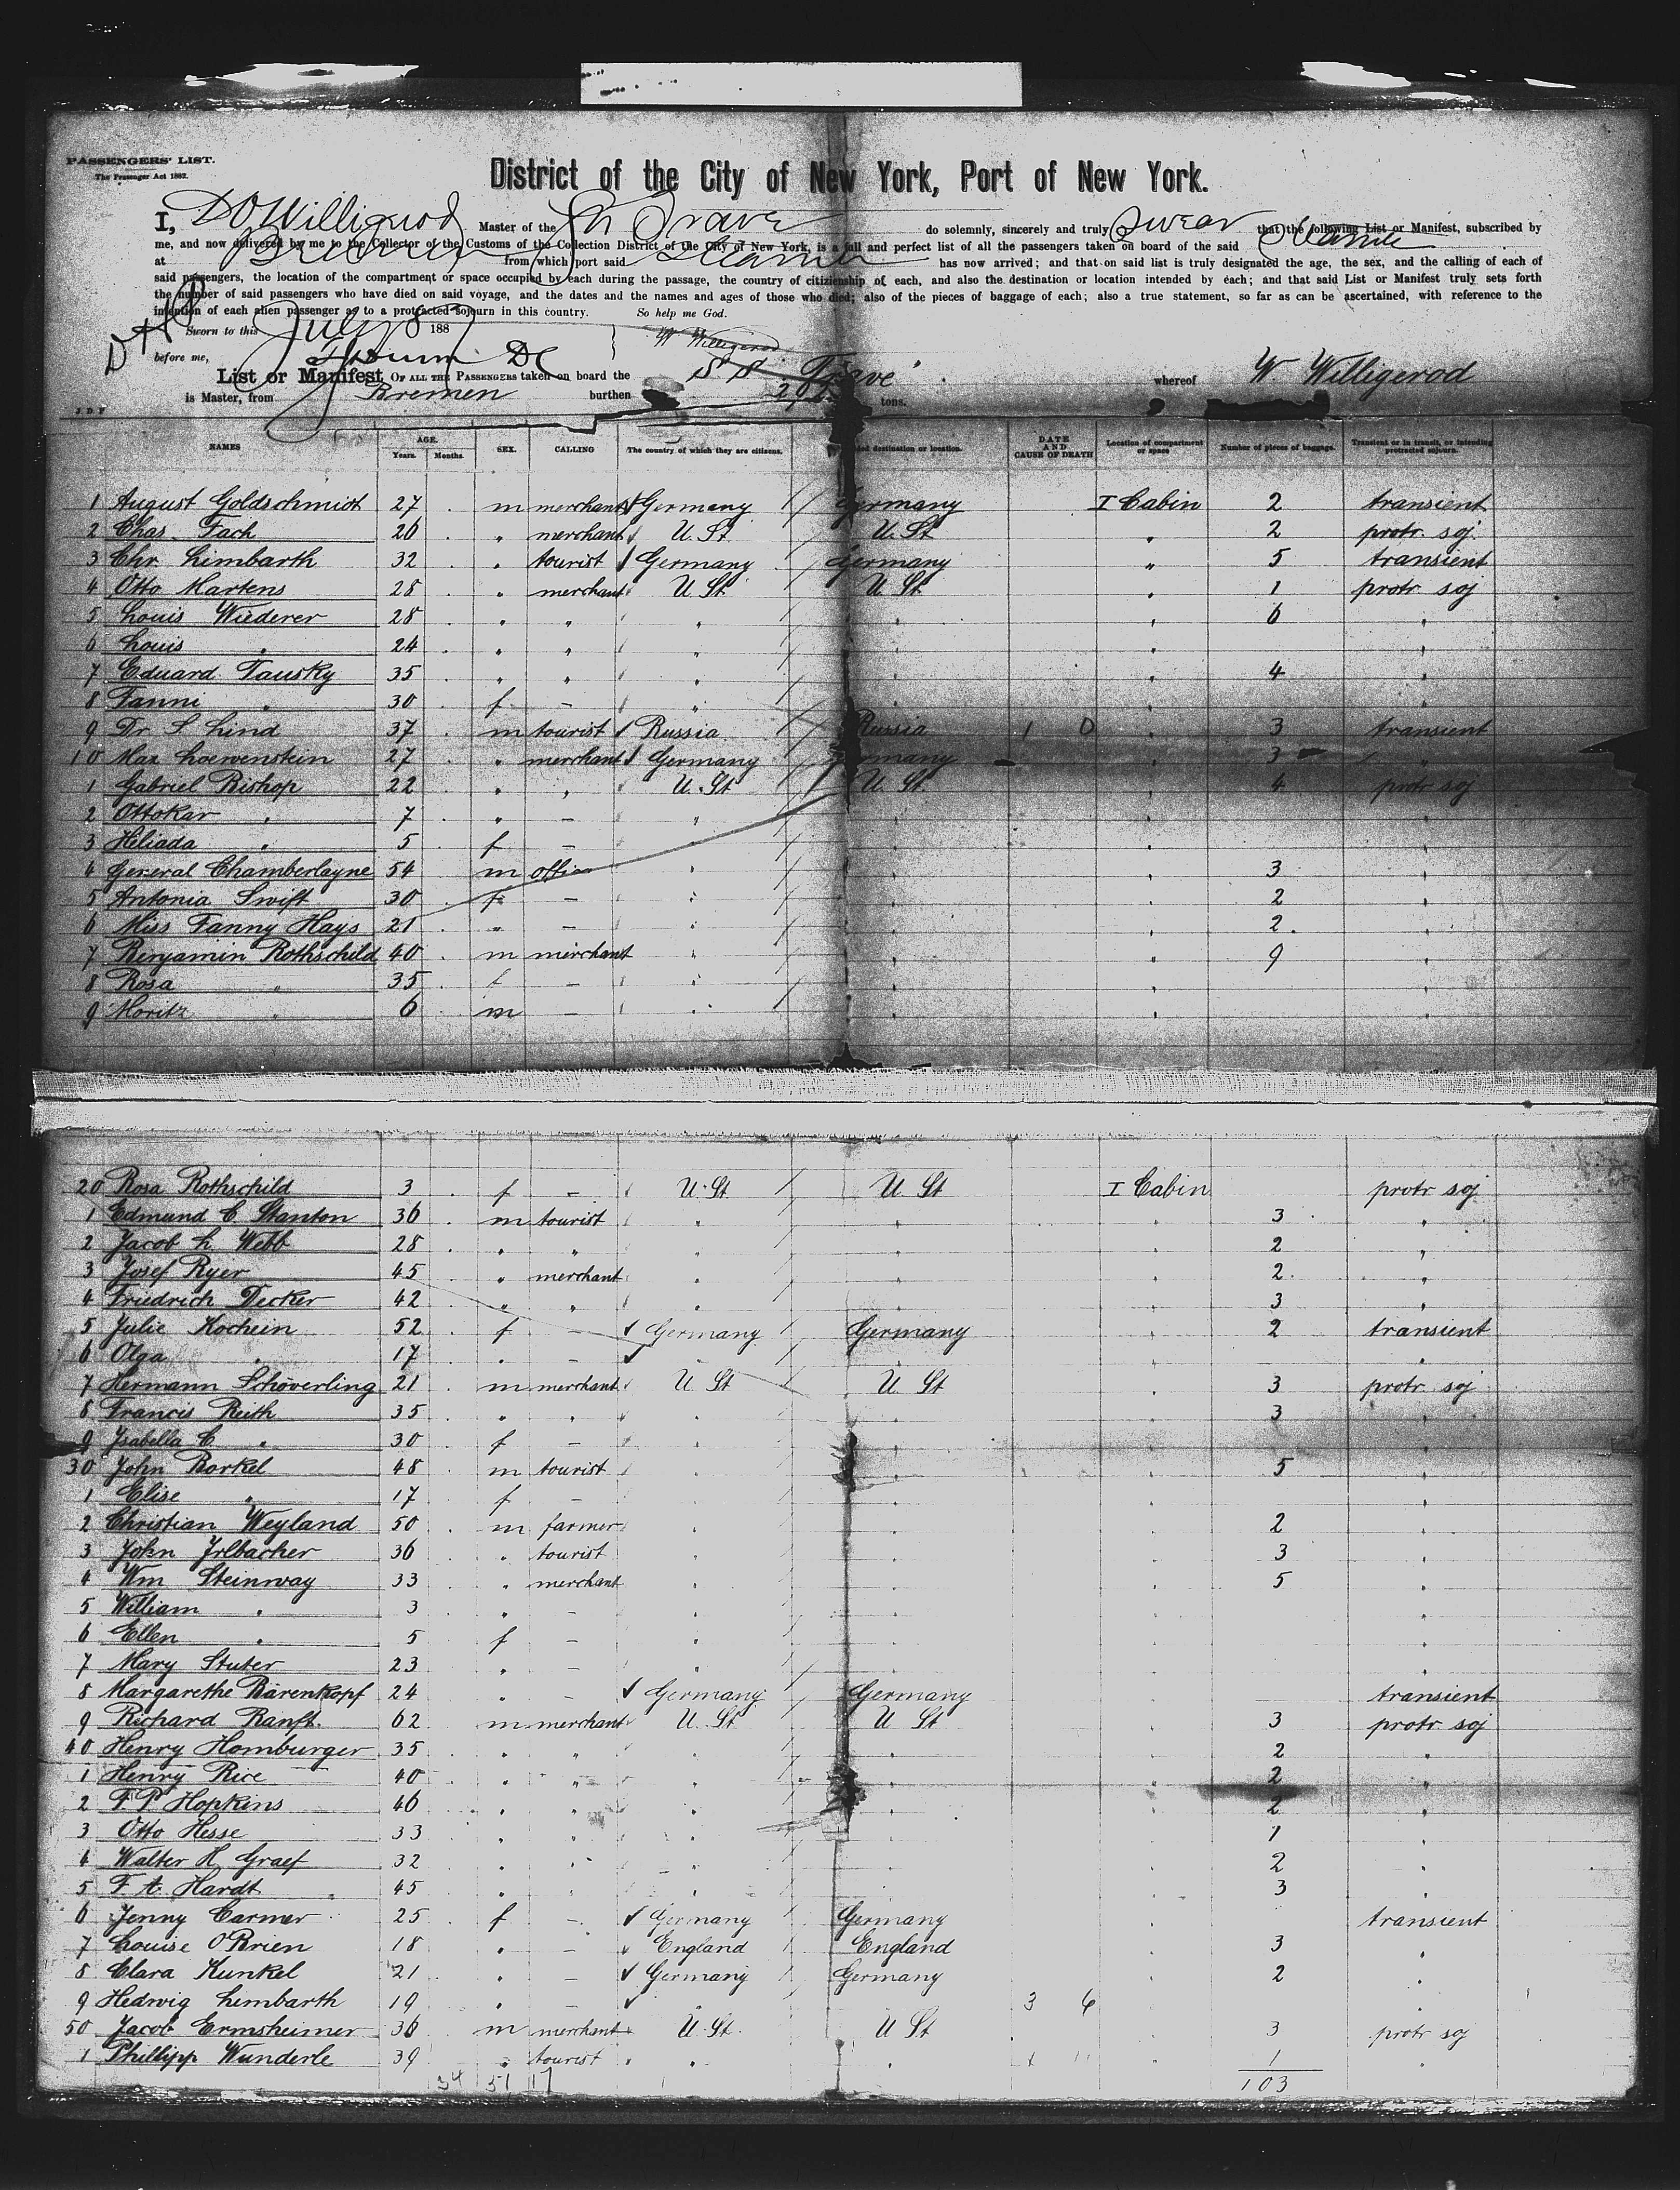 PASSENGERS' LIST.
The Passenger Act 1882.
District of the City of New York, Port of New York.
I, Willigerod Master of the Trave do solemnly, sincerely and truly swear that the following List or Manifest, subscribed by
me, and now delivered by me to the Collector of the Customs of the Collection District of the City of New York, is a full and perfect list of all the passengers taken on board of the said Steamer
at Bremen from which port said Steamer has now arrived; and that on said list is truly designated the age, the sex, and the calling of each of
said passengers, the location of the compartment or space occupied by each during the passage, the country of citizenship of each, and also the destination or location intended by each; and that said List or Manifest truly sets forth
the number of said passengers who have died on said voyage, and the dates and the names and ages of those who died; also of the pieces of baggage of each; also a true statement, so far as can be ascertained, with reference to the
intention of each alien passenger as to a protracted sojourn in this country. So help me God.
Sworn to this July 188
before me, W Willigerod
List or Manifest OF ALL THE PASSENGERS taken on board the S. S. "Trave" whereof W. Willigerod
is Master, from Bremen burthen tons.
J. D. F
NAMES AGE. Years. Months. SEX. CALLING The country of which they are citizens. destination or location. DATE AND CAUSE OF DEATH Location of compartment or space Number of pieces of baggage. Transient or in transit, or intending protracted sojourn.
1 August Goldschmidt 27 m merchant Germany Germany I Cabin 2 transient
2 Chas. Tach 26 " merchant U. St U. St " 2 protr. soj.
3 Chr. Limbarth 32 " tourist Germany Germany " 5 transient
4 Otto Martens 28 " merchant U. St U St " 1 protr soj
5 Louis Wiederer 28 " " " " " 6 "
6 Louis " 24 " " " " " "
7 Eduard Tausky 35 " " " " " 4 "
8 Fanni " 30 f - " " " "
9 Dr S. Lind 37 m tourist Russia Russia 1 0 " 3 transient
10 Max Loewenstein 27 " merchant Germany Germany " 3 "
1 Gabriel Bishop 22 " " U. St U. St " 4 protr soj
2 Ottokar " 7 " - " " " "
3 Heliada " 5 f - " " " "
4 General Chamberlayne 54 m " " " 3 "
5 Antonia Swift 30 f - " " " 2 "
6 Miss Fanny Hays 21 " - " " " 2. "
7 Benyamin Rothschild 40 m merchant " " " 9 "
8 Rosa " 35 f - " " " "
9 Moritz " 6 m - " " " "
20 Rosa Rothschild 3 f - U. St U St I Cabin protr soj
1 Edmund C. Stanton 36 m tourist " " " 3 "
2 Jacob L. Webb 28 " " " " " 2 "
3 Josef Ryer 45 " merchant " " " 2. "
4 Friedrich Decker 42 " " " " " 3 "
5 Julie Kochein 52 f - Germany Germany " 2 transient
6 Olga " 17 " - " " " "
7 Hermann Schöverling 21 m merchant U St U. St " 3 protr soj
8 Francis Reith 35 " " " " " 3 "
9 Isabella C " 30 f - " " " "
30 John Borkel 48 m tourist " " " 5 "
1 Elise " 17 f - " " " "
2 Christian Weyland 50 m farmer " " " 2 "
3 John Irlbacher 36 " tourist " " " 3 "
4 Wm Steinway 33 " merchant " " " 5 "
5 William " 3 " - " " " "
6 Ellen " 5 f - " " " "
7 Mary Stuter 23 " - " " " "
8 Margarethe Bärenkopf 24 " - Germany Germany " transient
9 Richard Ranft. 62 m merchant U. St U St " 3 protr soj
40 Henry Homburger 35 " " " " " 2 "
1 Henry Rice 40 " " " " " 2 "
2 F. P. Hopkins 46 " " " " " 2 "
3 Otto Hesse 33 " " " " " 1 "
4 Walter H. Graef 32 " " " " " 2 "
5 F. A. Hardt 45 " " " " " 3 "
6 Jenny Carmer 25 f - Germany Germany " transient
7 Louise O'Brien 18 " - England England " 3 "
8 Clara Kunkel 21 " - Germany Germany " 2 "
9 Hedwig Limbarth 19 " - " 3 6 "
50 Jacob Ermsheimer 36 m merchant U. St. U St " 3 protr soj
1 Phillipp Wunderle 39 " tourist " " " 1 "
34 51 17 103